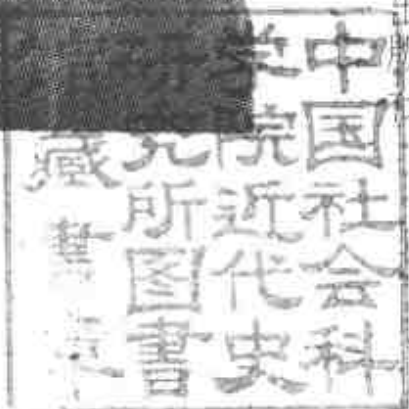 中国社会科
学院近代史
研究所图書
藏